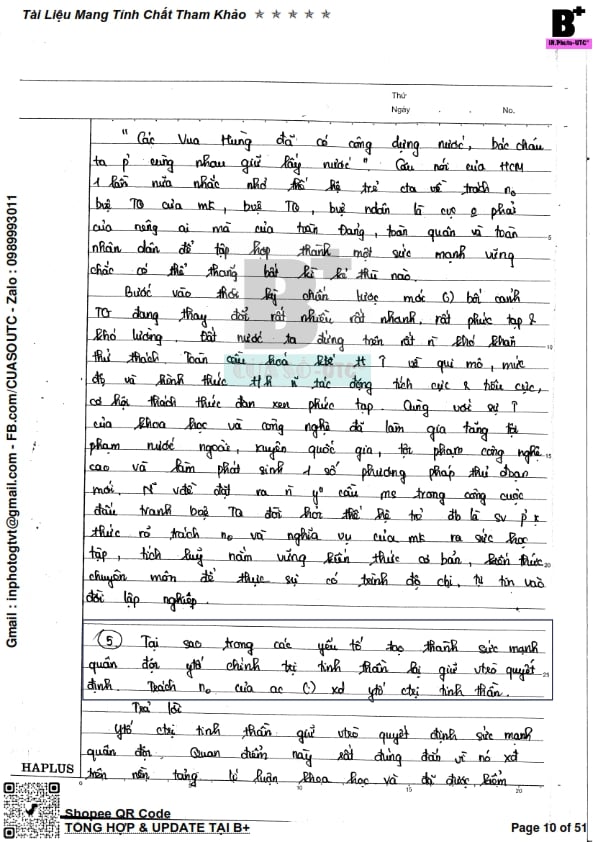 Tài Liệu Mang Tính Chất Tham Khảo ★ ★ ★ ★ ★
B+
IN.Photo-UTC
Thứ
Ngày . . No.
"Các Vua Hùng đã có công dựng nước, bác cháu
ta p² cùng nhau giữ lấy nước" Câu nói của HCM
1 lần nữa nhắc nhở thế hệ trẻ cta về trách no
buệ TQ của mk, buệ TQ, buệ ndân là cực phải
của riêng ai mà của toàn Đảng, toàn quân và toàn
nhân dân để tập hợp thành một sức mạnh vững
chắc có thể thắng bất kì kẻ thù nào.
Bước vào thời kỳ chiến lược mới bối cảnh
TG đang thay đổi rất nhiều rất nhanh, rất phức tạp &
khó lường. Đất nước ta đứng trên rất n khó khăn
thử thách Toàn cầu hoá về qui mô, mức
độ và hình thức tác động tích cực & tiêu cực,
cơ hội thách thức đan xen phức tạp. Cùng với sự ↑
của khoa học và công nghệ đã làm gia tăng tội
phạm nước ngoài, xuyên quốc gia, tội phạm công nghệ
cao và làm phát sinh 1 số phương pháp thủ đoạn
mới. N vđề đặt ra n yº cầu ms trong công cuộc
đấu tranh bvệ TQ đòi hỏi thế hệ trẻ đb là sv p x
thức rõ trách no và nghĩa vụ của mk ra sức học
tập, tích luỹ nắm vững kiến thức cơ bản, kiến thức
chuyên môn để thực sự có trình độ chị, tự tin vào
đời lập nghiệp.
5 Tại sao trong các yếu tố tạo thành sức mạnh
quân đội ytố chính trị tinh thần lại giữ vtrò quyết
định. Trách no của ac (:) xd ytố ctrị tinh thần.
Trả lời
Ytố ctrị tinh thần giữ vtrò quyết định sức mạnh
quân đội. Quan điểm này rất đúng đắn vì nó xđ
trên nền tảng lý luận khoa học và đã được kiểm
CUASỐ-UTC
5
10
15
20
25
HAPLUS 0 5 10 15 20
Gmail : inphotogtvt@gmail.com - FB.com/CUASOUTC - Zalo : 0989993011
Shopee QR Code
TỔNG HỢP & UPDATE TẠI B+
Page 10 of 51